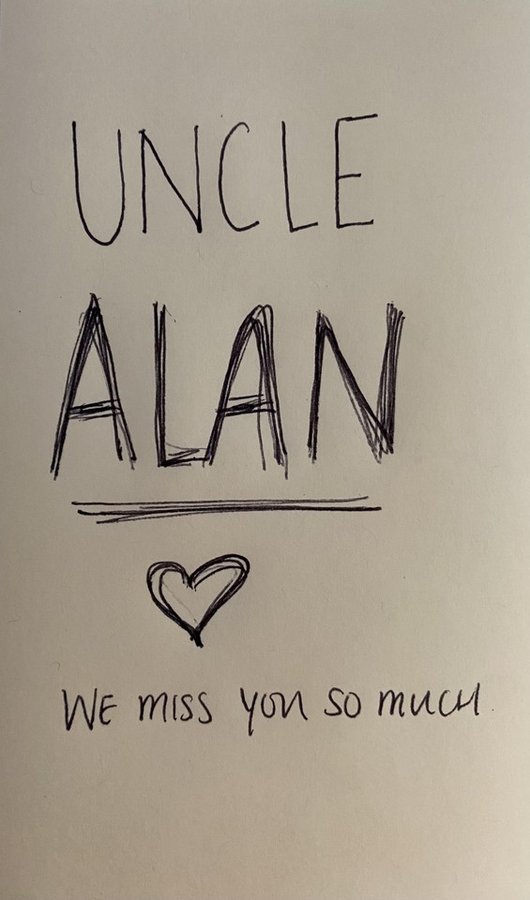 UNCLE
ALAN
WE MISS YOU SO MUCH